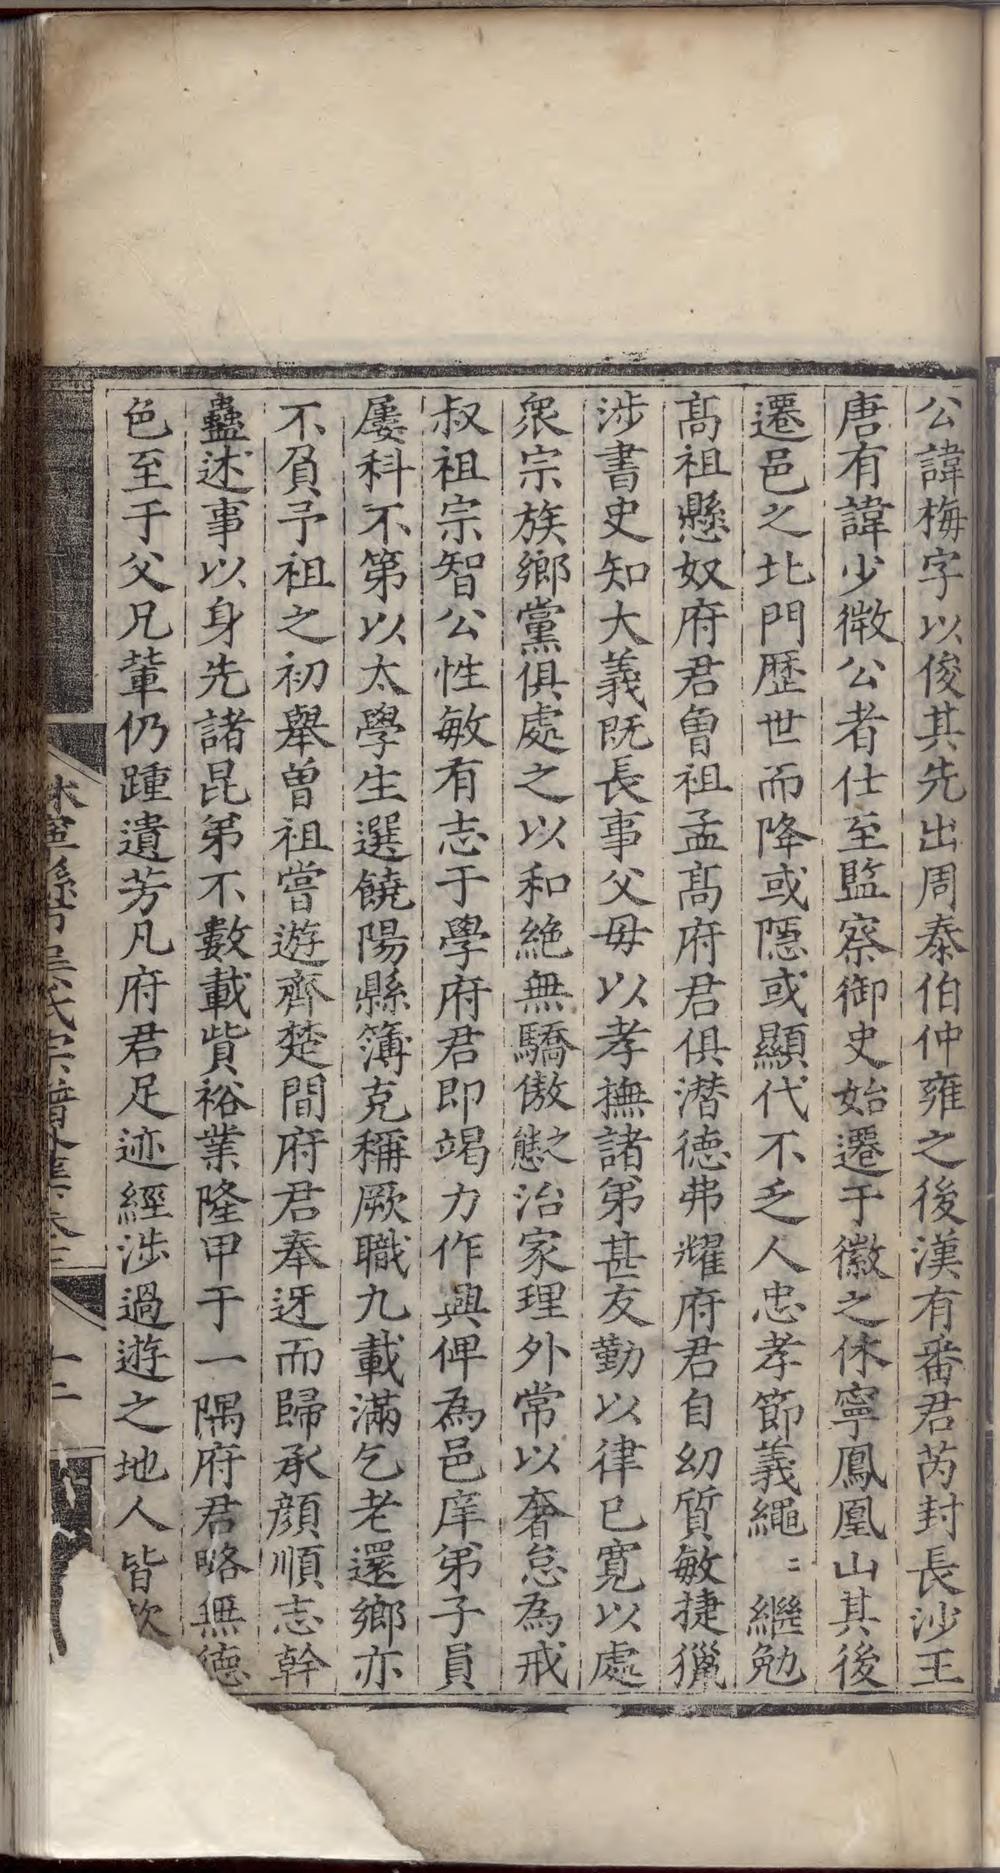 公諱梅字以俊其先出周泰伯仲雍之後漢有番君芮封長沙王
唐有諱少微公者仕至監察御史始遷于徽之休寧鳳凰山其後
遷邑之北門歷世而降或隱或顯代不乏人忠孝節義繩〻繼勉
高祖懸奴府君曾祖孟髙府君俱潜德弗耀府君自幼質敏捷獵
涉書史知大義既長事父母以孝撫諸弟甚友勤以律已寛以處
衆宗族鄉黨俱處之以和絶無驕傲之態治家理外常以奢怠為戒
叔祖宗智公性敏有志于學府君即竭力作興俾為邑庠弟子員
屢科不第以太學生選饒陽縣簿克稱厥職九載滿乞老還鄉亦
不負予祖之初舉曾祖嘗遊齊楚間府君奉迓而歸承顔順志幹
蠱述事以身先諸昆弟不數載貲裕業隆甲于一隅府君略無德
色至于父兄輩仍踵遺芳凡府君足迹經涉過遊之地人皆欽
休寧縣市吳氏宗譜外集卷三
十二